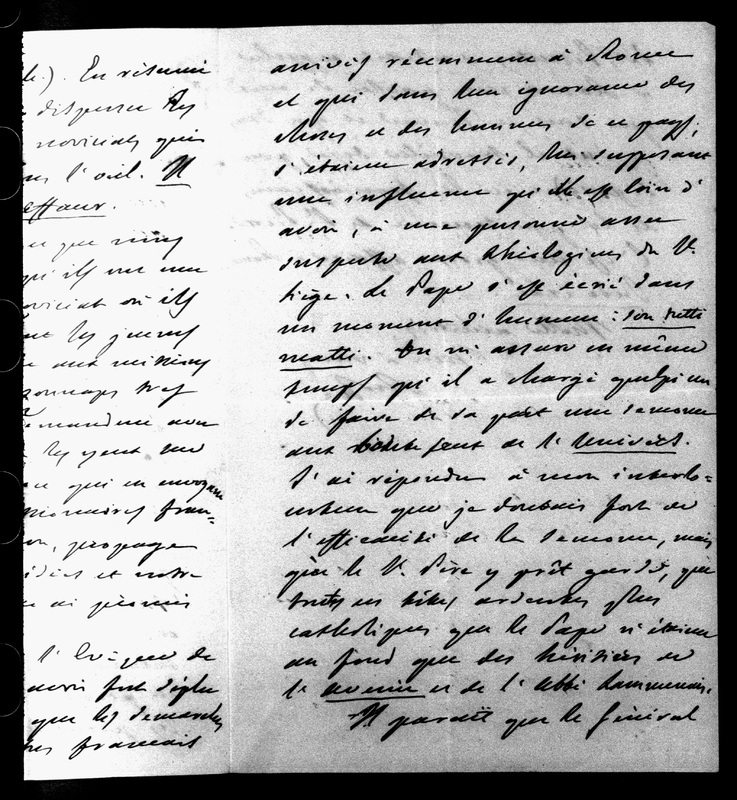 le.). En résumé
dispense les
noviciats que
l'œil. Il
effaur.
ce que nous
qu'ils ont une
noviciat où ils
les jeunes
aux missions
personnages très
demandent avec
les yeux
ce qui en envoyant
missionnaires fran=
propage
idées et notre
ai promis
l'Evêque de
avoir fort déplu
que les démarches
français
arrivés récemment à Rome
et qui dans leur ignorance des
choses et des hommes de ce pays,
s'étaient adressés, lui supposant
une influence qu'il est loin d'
avoir, à une personne assez
suspecte aux théologiens du St.
Siège. Le Pape s'est écrié dans
un moment d'humeur : son tutti
matti. On m'assure en même
temps qu'il a chargé quelqu'un
de faire de sa part une semonce
aux de l'Univers.
J'ai répondu à mon interlo=
cuteur que je doutais fort de
l'efficacité de la semonce, mais
que le St. Père y prît garde, que
toutes ces têtes ardentes plus
catholiques que le Pape n'étaient
au fond que des héritiers de
l'avenir et de l'Abbé Lammenais.
Il paraît que le Général